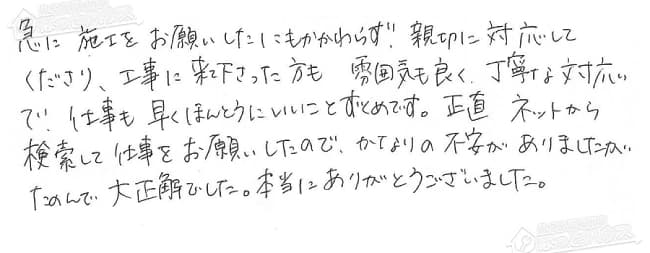 急に施工をお願いしたにもかかわらず、親切に対応して
くださり、工事に来て下さった方も 雰囲気も良く、丁寧な対応い
で、仕事も早くほんとうにいいことずくめです。正直 ネットから
検索して仕事をお願いしたので、かなりの不安がありましたが
たのんで大正解でした。本当にありがとうございました。